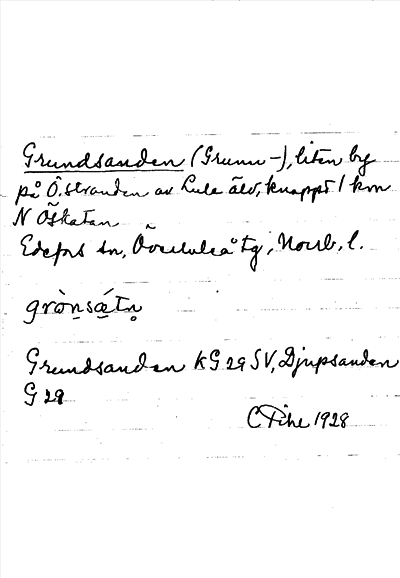 Grundsanden (Grunn-), liten by
på Ö. stranden av Lule älv, knappt 1 km
N Öskatan
Edefors sn, Överluleå tg, Norrb. l.
grònsátn
Grundsanden KG 29 SV, Djupsanden
G 29
C Pihl 1928